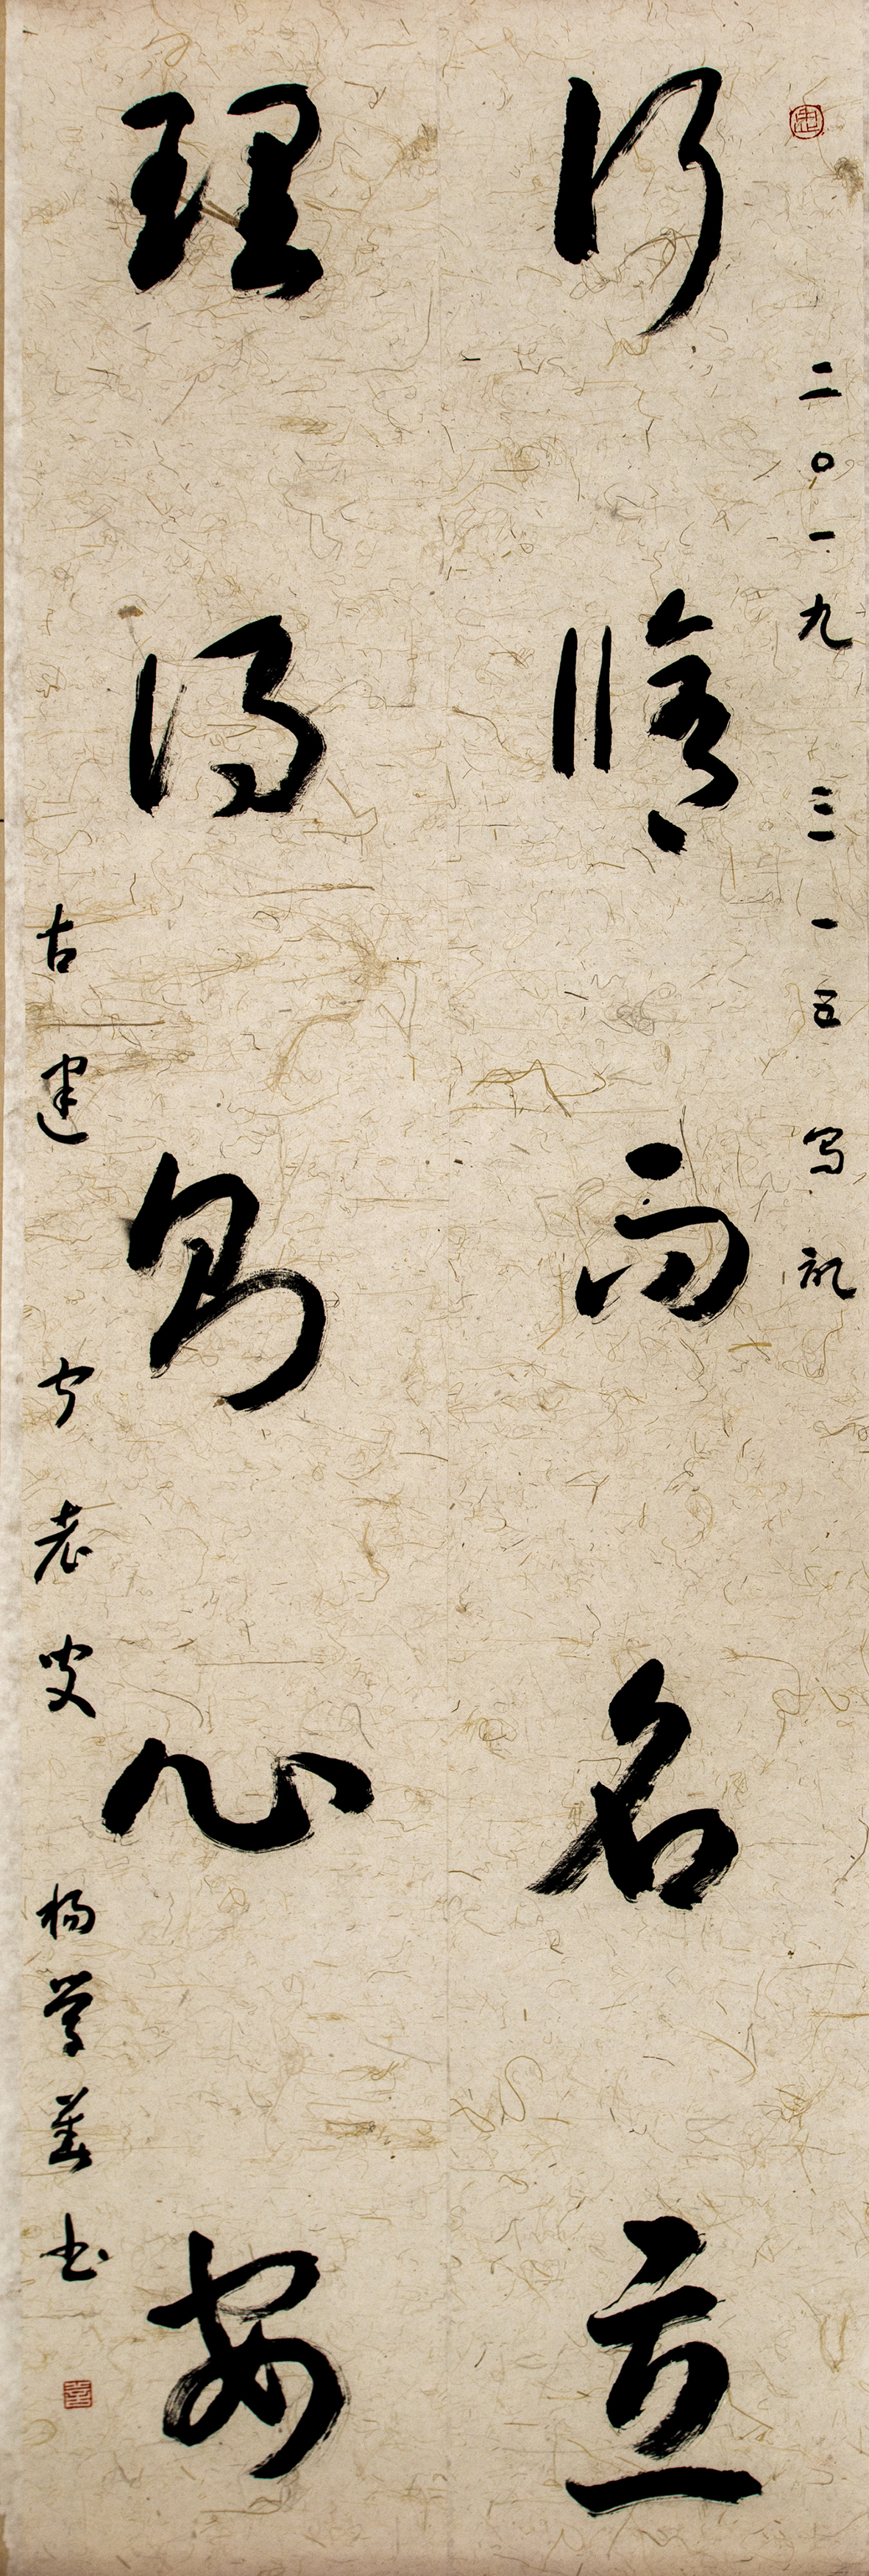 二〇一九 三一五 写
行修而名立
理得則心安
古建 老叟 杨学 书